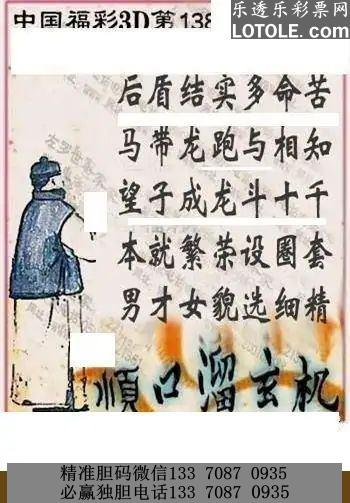 中国福彩3D第138
乐透乐彩票网
LOTOLE.COM
后盾结实多命苦
马带龙跑与相知
望子成龙斗十千
本就繁荣设圈套
男才女貌选细精
顺口溜玄机
精准胆码微信133 7087 0935
必赢独胆电话133 7087 0935